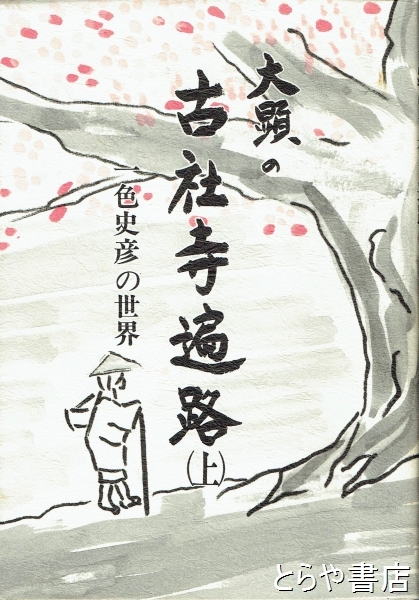 大顕の
古社寺遍路(上)
一色史彦の世界
とらや書店